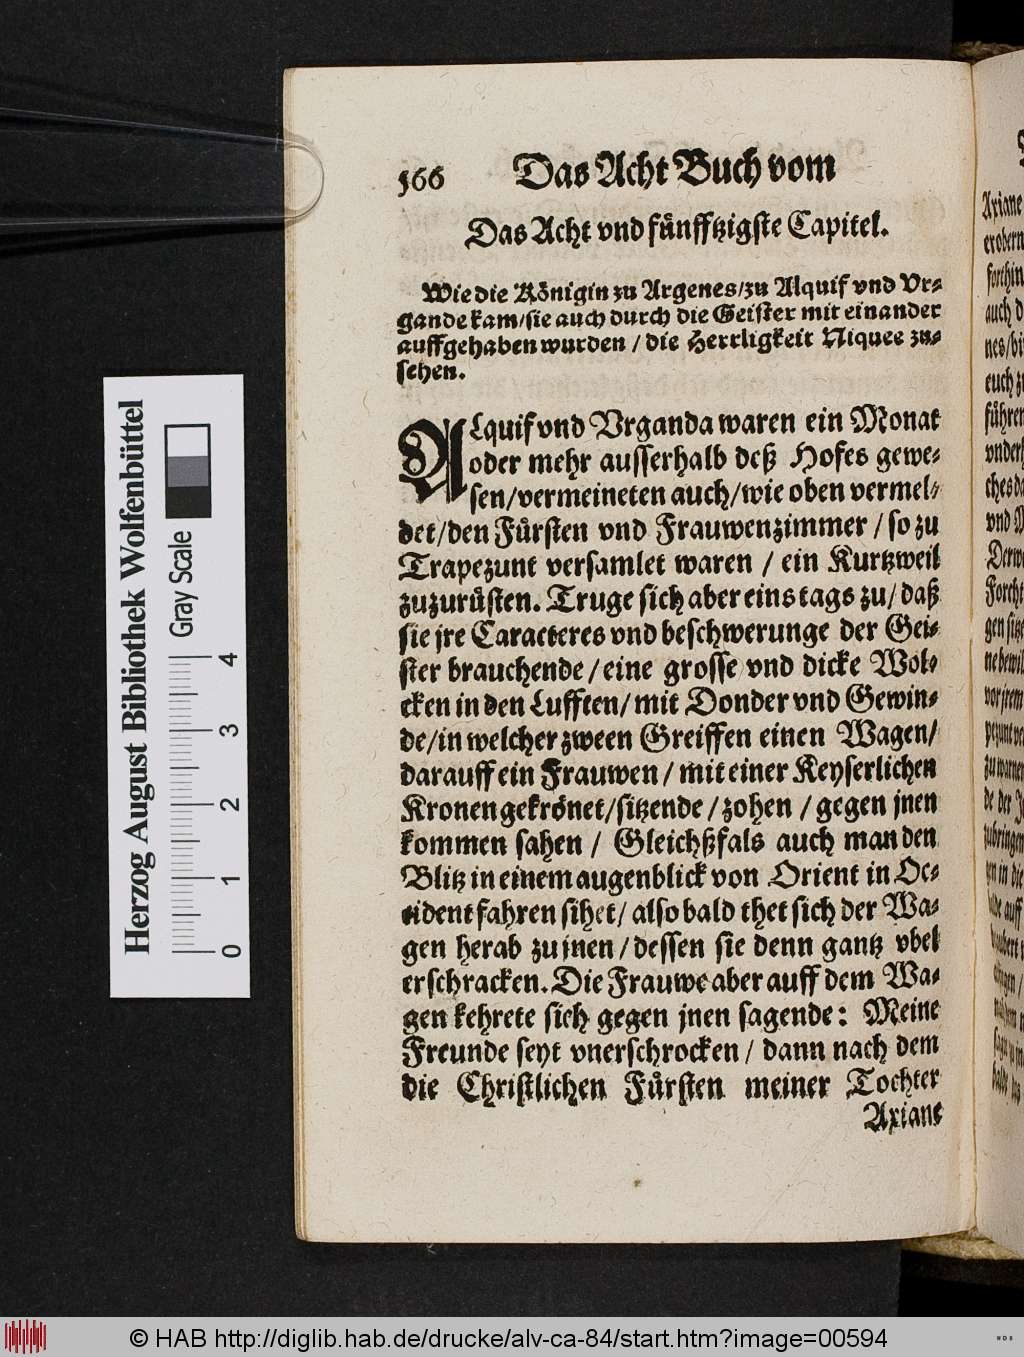 566 Das Acht Buch vom
Das Acht vnd fünfftzigste Capitel.
Wie die Königin zu Argenes/zu Alquif vnd Vr-
gande kam/sie auch durch die Geister mit einander
auffgehaben wurden / die Herrligkeit Niquee zu-
sehen.
ALquif vnd Vrganda waren ein Monat
oder mehr ausserhalb deß Hofes gewe-
sen/vermeineten auch/wie oben vermel-
det/den Fürsten vnd Frauwenzimmer / so zu
Trapezunt versamlet waren / ein Kurtzweil
zuzurüsten. Truge sich aber eins tags zu/ daß
sie jre Caracteres vnd beschwerunge der Gei-
ster brauchende/eine grosse vnd dicke Wol-
cken in den Lufften/ mit Donder vnd Gewin-
de/in welcher zween Greiffen einen Wagen/
darauff ein Frauwen / mit einer Keyserlichen
Kronen gekrönet/sitzende / zohen / gegen jnen
kommen sahen / Gleichßfals auch man den
Blitz in einem augenblick von Orient in Oc-
cident fahren sihet/ also bald thet sich der Wa-
gen herab zu jnen / dessen sie denn gantz vbel
erschracken. Die Frauwe aber auff dem Wa-
gen kehrete sich gegen jnen sagende: Meine
Freunde seyt vnerschrocken / dann nach dem
die Christlichen Fürsten meiner Tochter
Axiane
Axiane
erobern
forthin
auch d
euch z
führen
vnd
Forcht
Herzog August Bibliothek Wolfenbüttel
Gray Scale
0 1 2 3 4
© HAB http://diglib.hab.de/drucke/alv-ca-84/start.htm?image=00594